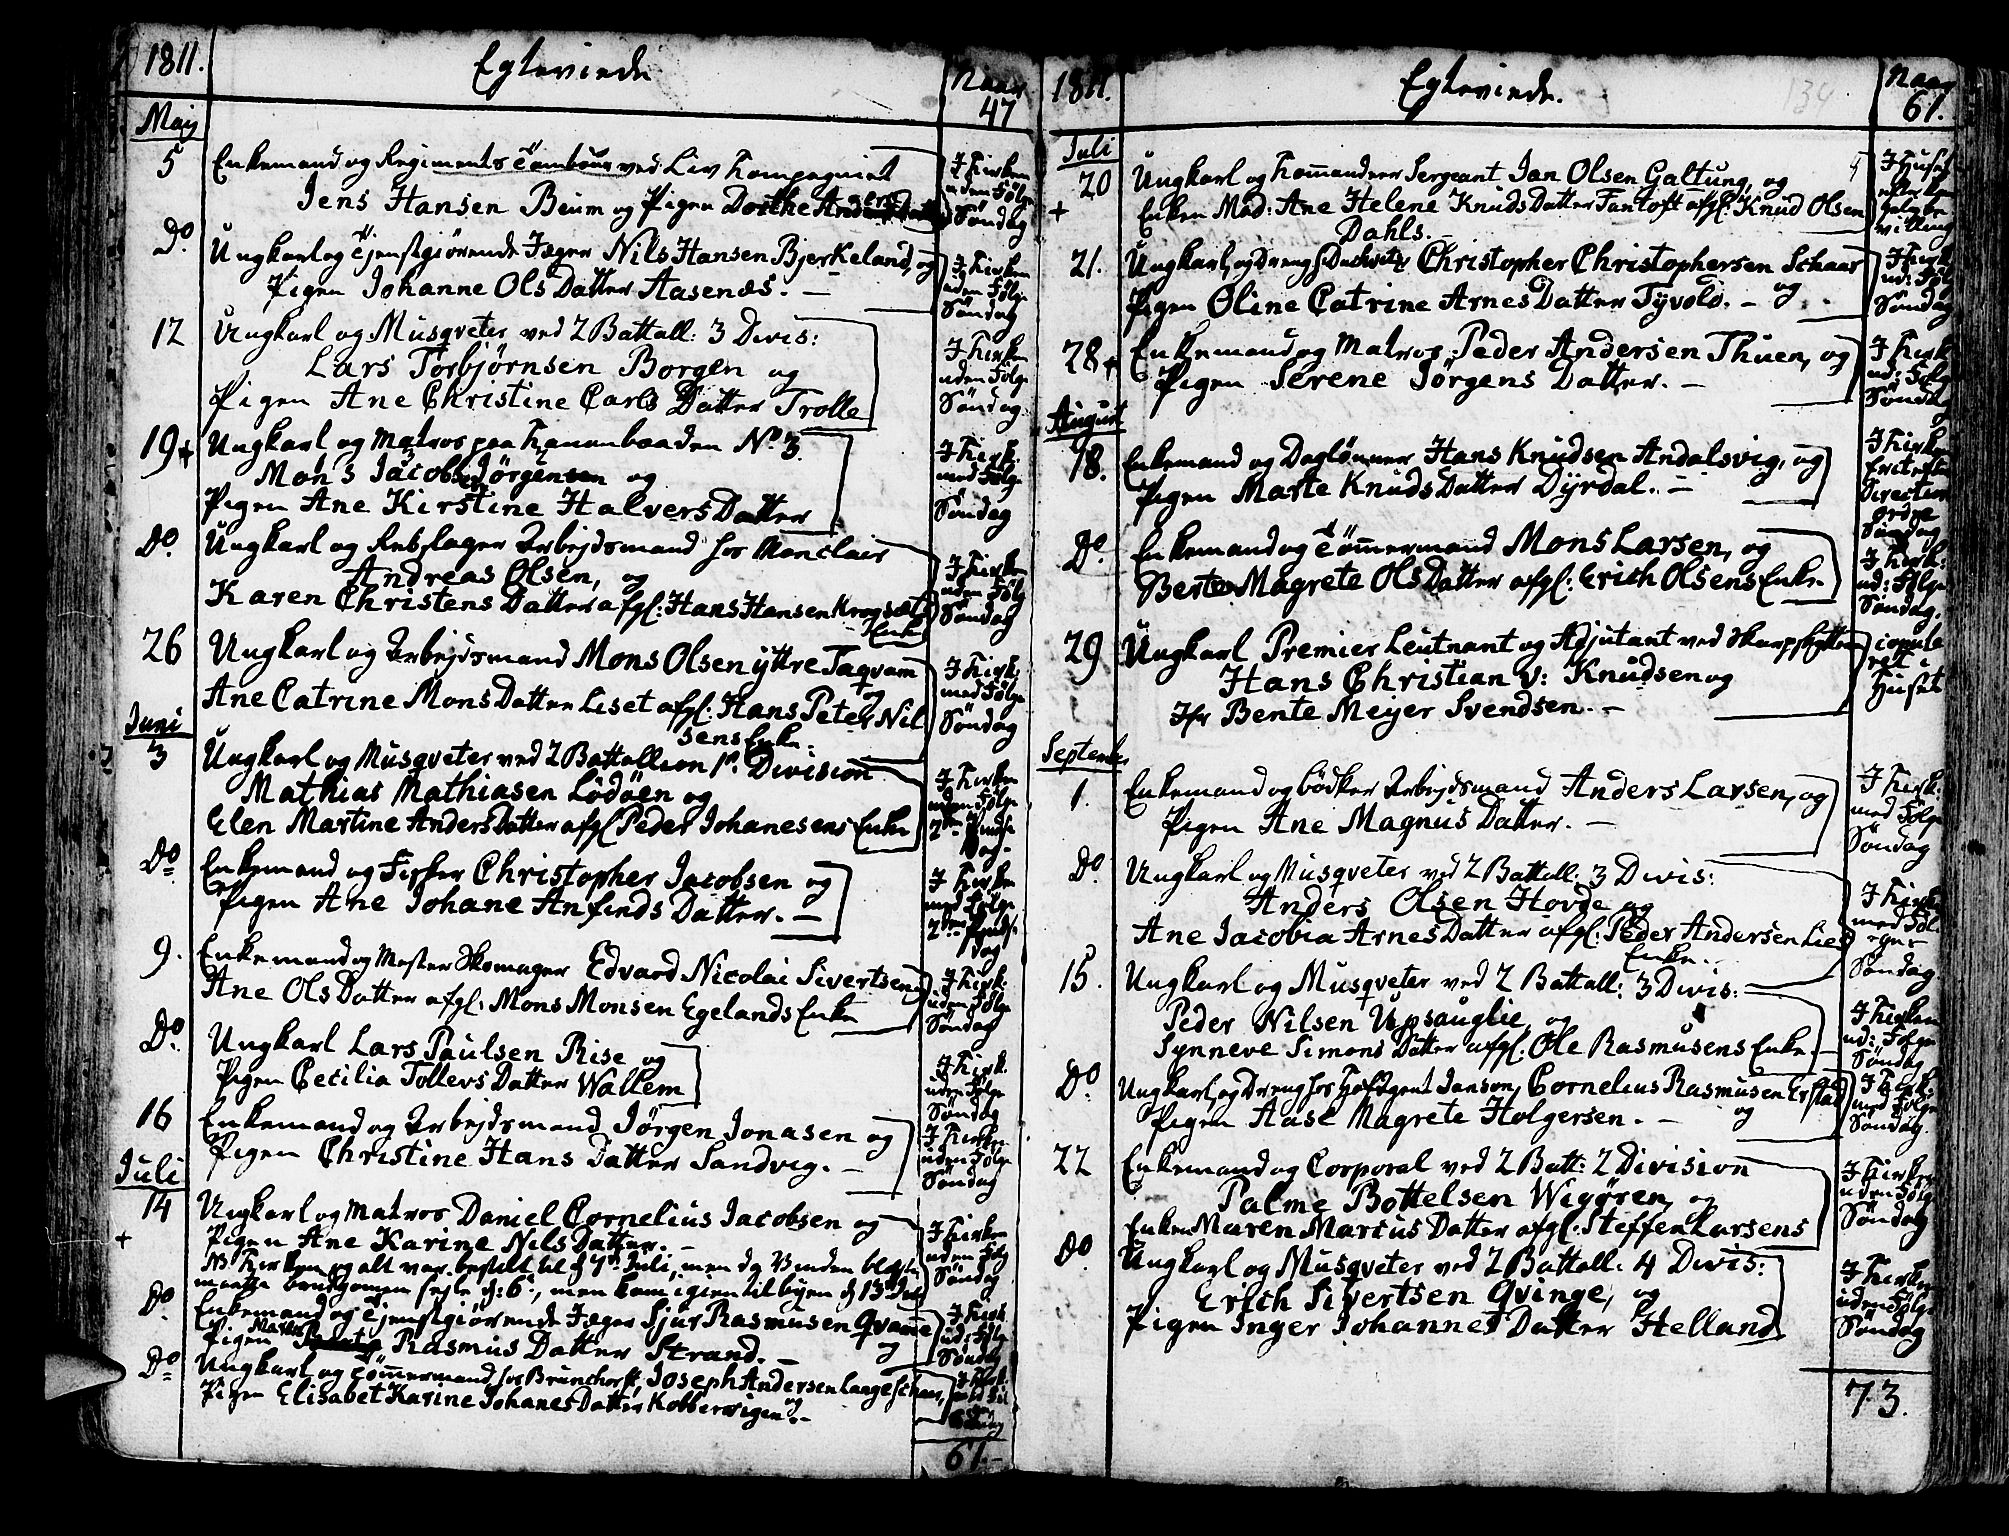 1811.
Egteviede
Naar
47
May
5
Enkemand og Regiments Tambour ved Liv Kompagniet
Jens Hansen Beum og Pigen Dorthe
I Kirken
uden Følge
Søndag
Do
Ungkarl og Tjenstgiørende Jæger Nils Hansen Bjerkeland, og
Pigen Johanne Ols Datter Aasenæs. –
I Kirken
uden Følge
Søndag
12
Ungkarl og Musqveter ved 2 Battall: 3 Divis:
Lars Torbjørnsen Borgen og
Pigen Ane Christine Carls Datter Trolle
I Kirken
uden Følge
Søndag.
19 +
Ungkarl og Matros paa Kanonbaaden No 3.
Mons Jacobs Jørgensen og
Pigen Ane Kirstine Halvers Datter
I Kirk.
med Følge
Søndag
Do.
Ungkarl og Rebslager Arbejdsmand hos Monclair
Andreas Olsen, og
Karen Christens Datter afgl: Hans Hansen
Enke
I Kirken
uden Følg
Søndag
26
Ungkarl og Arbejdsmand Mons Olsen ÿttre Taqvam
og
Ane Catrine Mons Datter Liset afgl: Hans Peter Nil
sens Enke.
I Kirk:
med Følg
Søndag
Juni
3
Ungkarl og Musqveter ved 2 Battallion 1ste Division
Mathias Mathiasen Lödöen og
Elen Martine Anders Datter afgl Peder Johanesens Enke
I Kirken
uden Følge
2den Pindse
Dag.
Do
Enkemand og Fisker Christopher Jacobsen og
Pigen Ane Johane Anfinds Datter. –
I Kirken
med Følge
2den Pindse
Dag
9.
Enkemand og Mester Skomager Edvard Nicolai Sivertsen og
Ane Ols Datter afgl: Mons Monsen Egelands Enke
I Kirk:
uden Følge
Søndag
Do.
Ungkarl Lars Paulsen Rise og
Pigen Cecilia Tollevs Datter Wallem
I Kirk.
uden Følge
Søndag
16
Enkemand og Arbejdsmand Jörgen Jonasen og
Pigen Christine Hans Datter Sandvig. –
I Kirken
uden Følge
Søndag
Juli
14
+
Ungkarl og Matros Daniel Cornelius Jacobsen og
Pigen Ane Karine Nils Datter. –
NB Kirken og alt var bestilt til d 7de Juli, men da Vinden blæste
maatte brudgomen sejle d: 6te, men kom igien til byen d 13 Juli
I Kirken
uden Følg
Søndag
Do.
Enkemand og Tjenstgiørende Jæger Sjur Rasmusen Qvamme
og
Pigen Rasmus Datter Strand. –
I Kirk
ud: Følge
Søndag
Do
Ungkarl og Tømmermand hos Brunchorst, Joseph Andersen Langeschan,
og
Pigen Elisabet Karine Johanes Datter Kobbervigen. –
I Kirk.
61. –
1811.
Egteviede.
134
Naar
61.
Juli
20
+
Ungkarl og Kommandeer Sergeant Jan Olsen Galtung, og
Enken Mad: Ane Helene Knuds Datter Fantoft afgl: Knud Olsen
Dahls. –
I Huset
efter
villing
21.
Ungkarl, og Christopher Christophersen Schaar
og
Pigen Oline Catrine Arnes Datter Tyvold. –
I Kirk
ud: Følg
Søndag
28 +
Enkemand og Matros Peder Andersen Thuen, og
Pigen Serene Jörgens Datter. –
I Kirk.
ud: Følge
Søndag
August
18.
Enkemand og Daglønner Hans Knudsen Andalsvig, og
Pigen Marte Knuds Datter Dÿrdal. –
I Kirken
Direction
Ordre
Søndag
Do.
Enkemand og Tømmermand Mons Larsen, og
Berte Magrete Ols Datter afgl: Erich Olsens Enke
I Kirk:
ud: Følge
Søndag.
29
Ungkarl Premier Leutnant og Adjutant ved Skarpskytterne
Hans Christian v: Knudsen og
Jfr Bente Meyer Svendsen. –
copule
ret i
Huset
September
1.
Enkemand og bødker Arbejdsmand Anders Larsen, og
Pigen Ane Magnus Datter. –
I Kirk:
med Følge
Søndag
Do.
Ungkarl og Musqveter ved 2 Battall: 3 Divis:
Anders Olsen Hovde og
Ane Jacobia Arnes Datter afgl: Peder Andersen Lies
Enke. –
I Kirken
med Føl
ge –
Søndag
15.
Ungkarl og Musqveter ved 2 Battall: 3 Divis:
Peder Nilsen Upsauglie, og
Synneve Simons Datter afgl: Ole Rasmusens Enke. –
I Kirken
ud: Følge
Søndag
Do.
Ungkarl, og Dreng hos Hofagent Janson, Cornelius Rasmusen Erstad
og
Pigen Aase Magrete Holgersen. –
I Kirk:
med Følge
Søndag.
22
Enkemand og Corporal ved 2 Batt: 2 Division
Palme Bottelsen Wigören og
Enken Maren Marcus Datter afgl: Steffen Larsens
I Kirken
uden Følg
Søndag
Do.
Ungkarl og Musqveter ved 2 Battall: 4 Divis:
Erich Sivertsen Qvinge, og
Pigen Inger Johannes Datter Helland
I Kirken
uden Følge
Søndag
73.